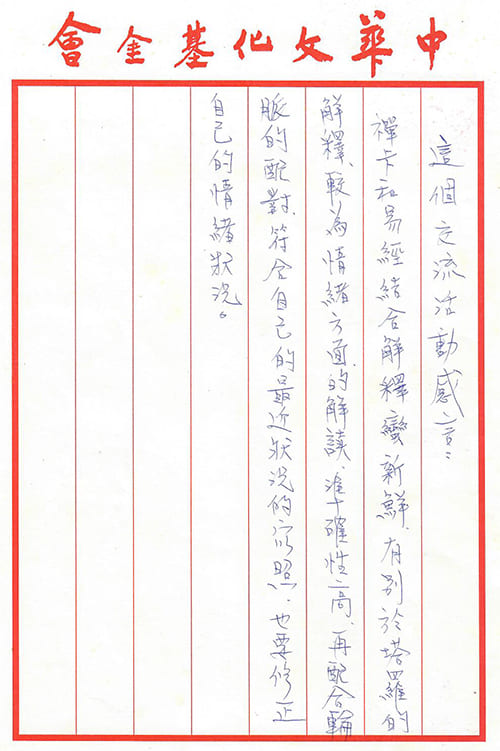 中華文化基金會
這個交流活動感言：
禪卡和易經結合解釋蠻新鮮，有別於塔羅的
解釋，較為情緒方面的解讀，準確性高，再配合輪
脈的配對，符合自己的最近狀況的寫照，也要修正
自己的情緒狀況。